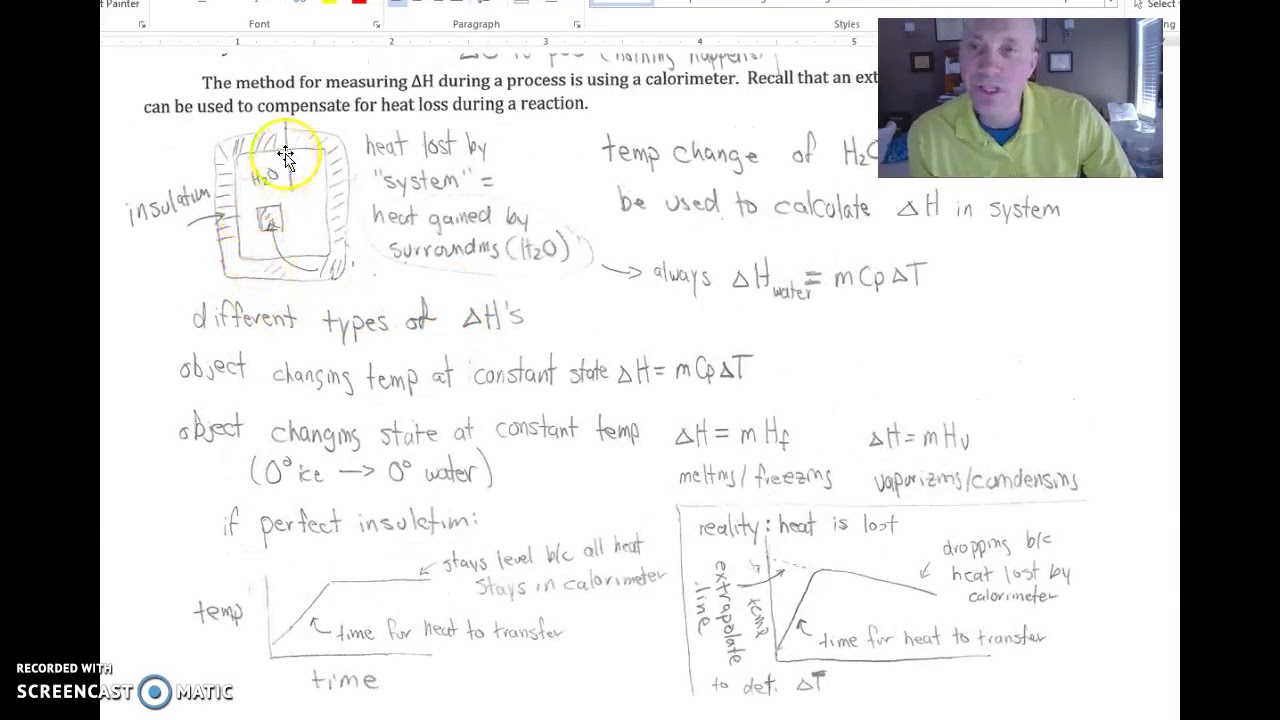 t Painter
Font
Paragraph
Styles
Select
1 2 3 4 5
(nothing happens)
The method for measuring ΔH during a process is using a calorimeter. Recall that an ext
can be used to compensate for heat loss during a reaction.
insulation
H2O
heat lost by
"system" =
heat gained by
surroundins (H2O)
temp change of H2O
be used to calculate ΔH in system
→ always ΔHwater = mCpΔT
different types of ΔH's
object changing temp at constant state ΔH = mCpΔT
object changing state at constant temp ΔH = mHf ΔH = mHv
(0° ice → 0° water) melting/freezing vaporizing/condensing
if perfect insulation:
temp
stays level b/c all heat
stays in calorimeter
time for heat to transfer
time
reality: heat is lost
extrapolate
line
temp
dropping b/c
heat lost by
calorimeter
time for heat to transfer
to det. ΔT
RECORDED WITH
SCREENCAST MATIC